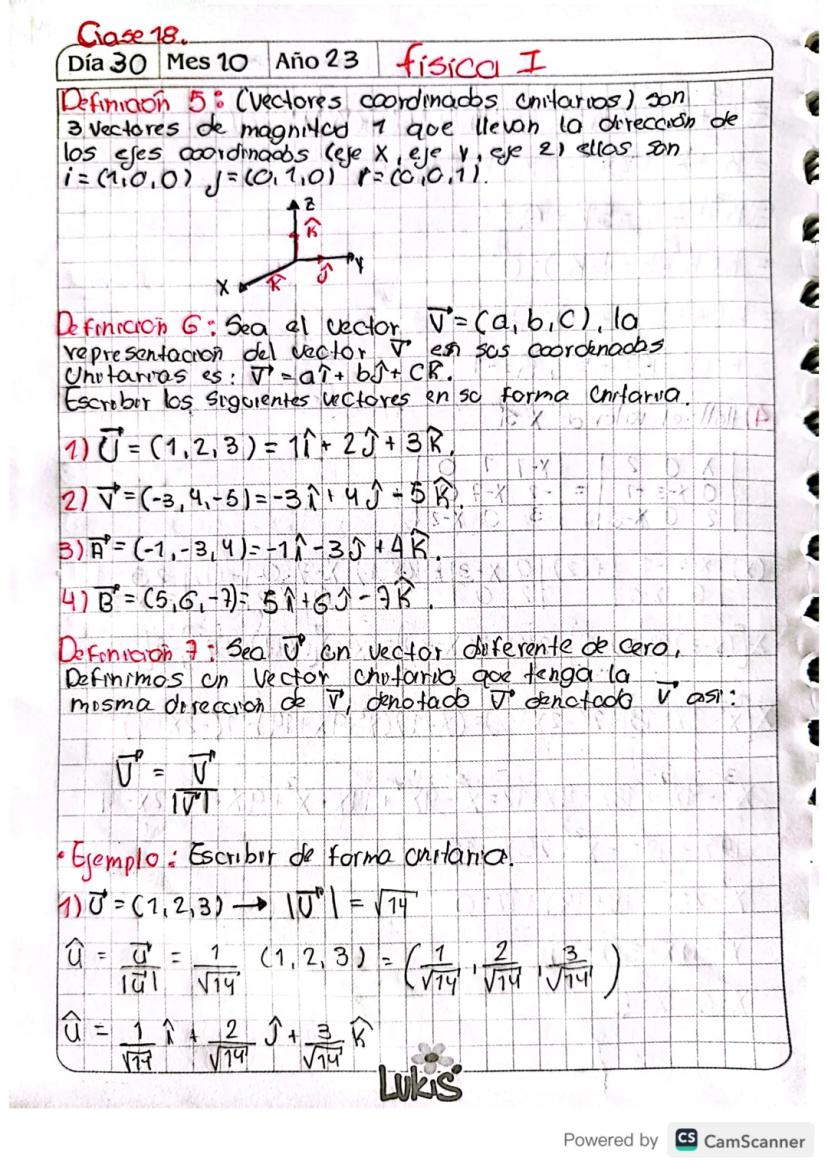 Clase 18.
Día 30 Mes 10 Año 23 física I
Definición 5: (Vectores coordinados unitarios) son
3 vectores de magnitud 1 que llevan la dirección de
los ejes coordinados (eje X, eje Y, eje Z) ellos son
i = (1,0,0) j = (0,1,0) k = (0,0,1).
Z
K̂
Y
Ĵ
X
K̂
Definición 6: Sea el vector V⃗ = (a, b, c), la
representación del vector V⃗ en sus coordenadas
Unitarias es: V⃗ = aî + bĵ + cK̂.
Escribir los siguientes vectores en su forma unitaria.
1) U⃗ = (1, 2, 3) = 1î + 2ĵ + 3K̂.
2) V⃗ = (-3, 4, -5) = -3î + 4ĵ - 5K̂.
3) A⃗ = (-1, -3, 4) = -1î - 3ĵ + 4K̂.
4) B⃗ = (5, 6, -7) = 5î + 6ĵ - 7K̂.
Definición 7: Sea U⃗ un vector diferente de cero,
Definimos un vector unitario que tenga la
misma dirección de V⃗, denotado U⃗ denotado V⃗ así:
U⃗ = V⃗ / |V⃗|
• Ejemplo: Escribir de forma unitaria.
1) U⃗ = (1, 2, 3) → |U⃗| = √14
û = u⃗ / |u⃗| = 1/√14 (1, 2, 3) = (1/√14, 2/√14, 3/√14)
û = 1/√14 î + 2/√14 ĵ + 3/√14 K̂
LUKIS
Powered by CS CamScanner